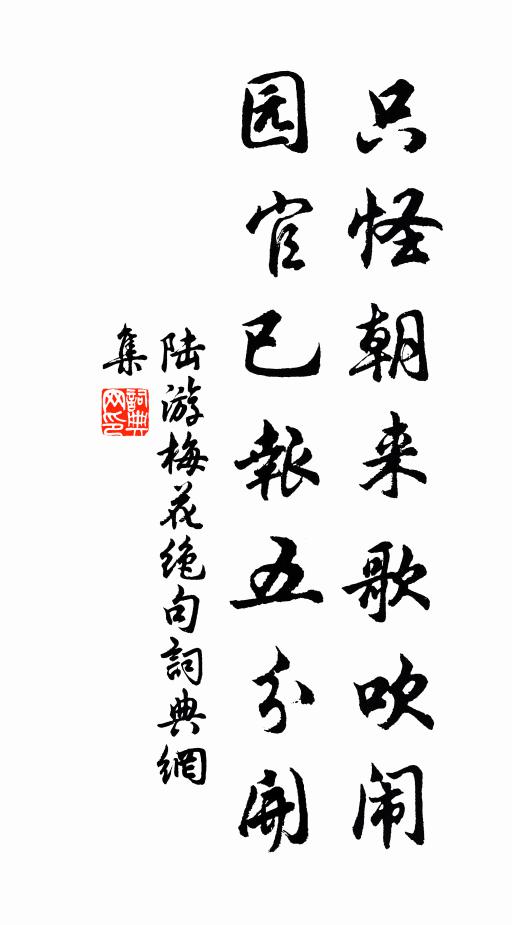 只怪朝来歌吹闹
园官已報五分開
陆游梅花绝句詞典網
集
詞典
网印